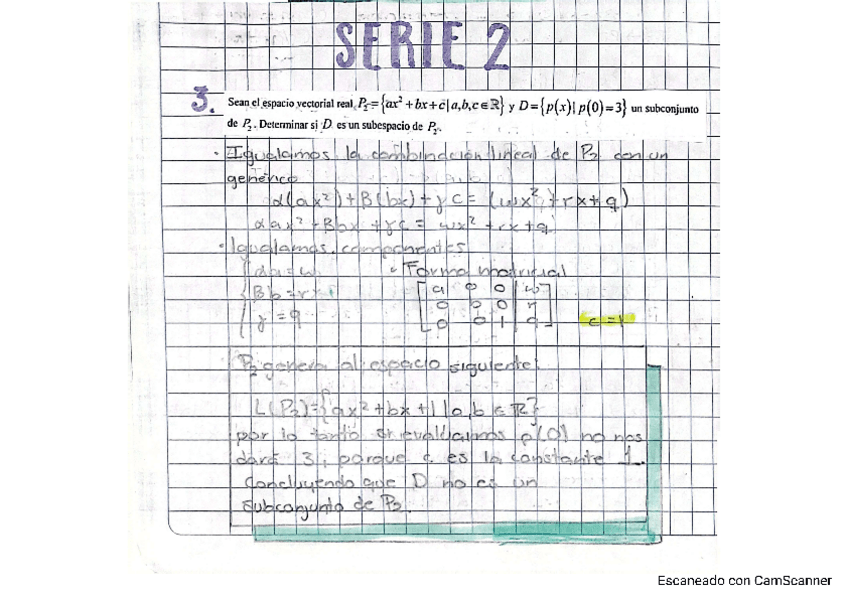 SERIE 2
3. Sean el espacio vectorial real, P₂={ax²+bx+c|a,b,c∈ℝ} y D={p(x)| p(0)=3} un subconjunto
de P₂. Determinar si D es un subespacio de P₂.
· Igualamos la combinación lineal de P₂ con un
genérico
α(ax²)+β(bx)+γc=(wx²+rx+q)
αax²+βbx+γc=wx²+rx+q
· Igualamos componentes
αa=w • Forma matricial
βb=r [a 0 0 | w]
[0 b 0 | r]
γ=q [0 0 1 | q] c=1
P₂ genera al espacio siguiente:
L(P₂)={ax²+bx+1|a,b∈ℝ}
por lo tanto si evaluamos p(0) no nos
dará 3, porque c es la constante 1.
Concluyendo que D no es un
subconjunto de P₂.
Escaneado con CamScanner